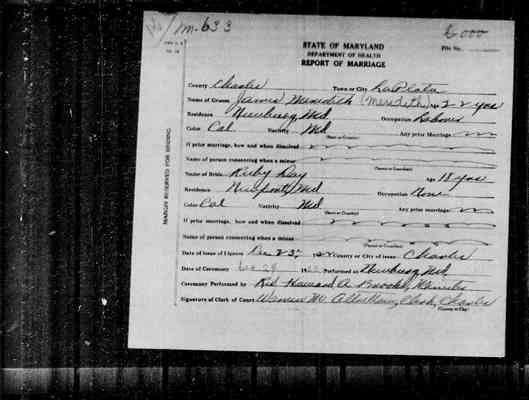 M-633
6000
STATE OF MARYLAND
DEPARTMENT OF HEALTH
REPORT OF MARRIAGE
File No.
County Charles Town or City LaPlata
Name of Groom James Meredith (Meredith) Age 22 yrs
Residence Newburg, Md Occupation Laborer
Color Col Nativity Md Any prior Marriage
(State or Country)
If prior marriage, how and when dissolved
(Parent or Guardian)
Name of person consenting when a minor
Name of Bride Day Age 18 yrs
Residence Newport, Md Occupation None
Color Col Nativity Md Any prior marriage
(State or Country)
If prior marriage, how and when dissolved
Name of person consenting when a minor
(Parent or Guardian)
Date of Issue of License Dec 23, County or City of issue Charles
Date of Ceremony Dec 29 Performed at Newburg, Md
Ceremony Performed by Rev Howard A Brooks, Minister
Signature of Clerk of Court Clerk, Charles
(County or City)
MARGIN RESERVED FOR BINDING.